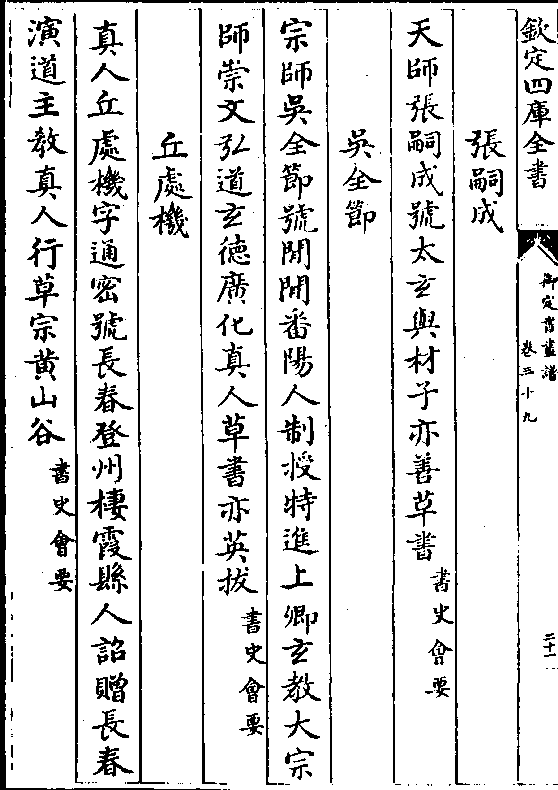 欽定四庫全書
御定書畫譜
卷三十九
二十一
張嗣成
天師張嗣成號太玄與材子亦善草書書史會要
吳全節
宗師吳全節號閒閒番陽人制授特進上卿玄教大宗
師崇文弘道玄德廣化真人草書亦英拔書史會要
丘處機
真人丘處機字通密號長春登州棲霞縣人詔贈長春
演道主教真人行草宗黃山谷書史會要